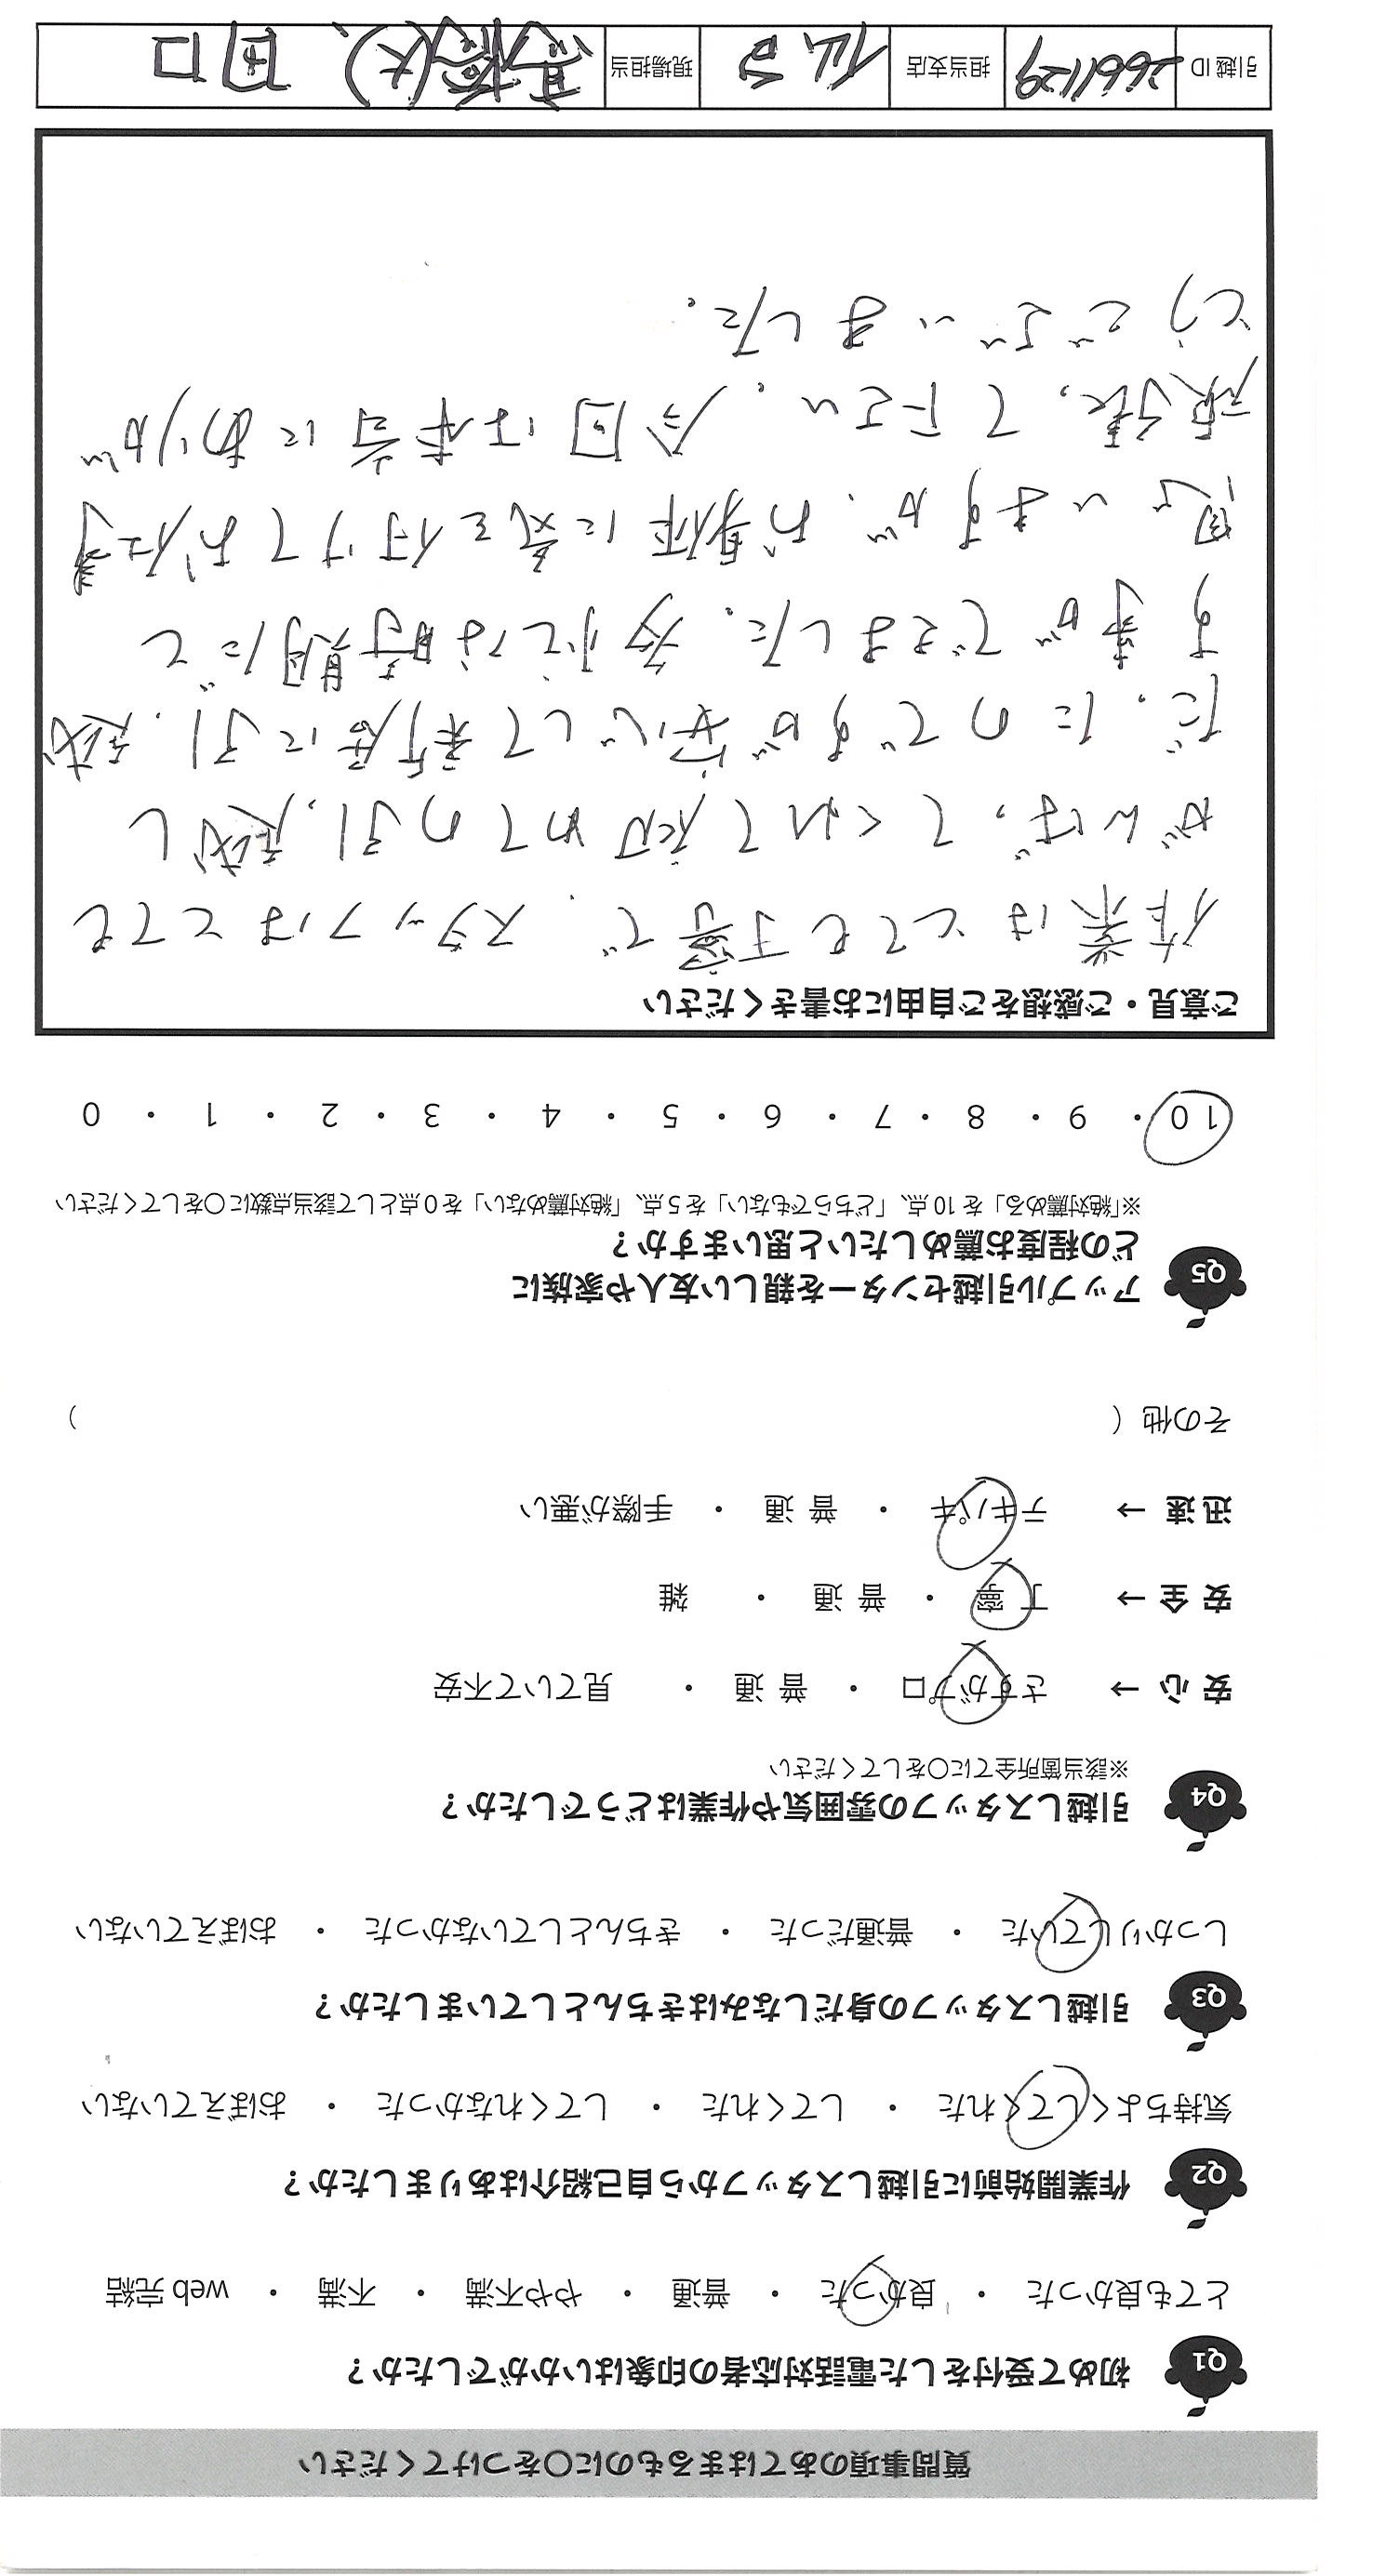 質問事項のあてはまるものに○をつけてください
Q1 初めて受付をした電話対応者の印象はいかがでしたか?
とても良かった ・ 良かった ・ 普通 ・ やや不満 ・ 不満 ・ web 完結
Q2 作業開始前に引越しスタッフから自己紹介はありましたか?
気持ちよくしてくれた ・ してくれた ・ してくれなかった ・ おぼえていない
Q3 引越しスタッフの身だしなみはきちんとしていましたか?
しっかりしていた ・ 普通だった ・ きちんとしていなかった ・ おぼえていない
Q4 引越しスタッフの雰囲気や作業はどうでしたか?
※該当箇所全てに○をしてください
安 心 → さすがプロ ・ 普 通 ・ 見ていて不安
安 全 → 丁 寧 ・ 普 通 ・ 雑
迅 速 → テキパキ ・ 普 通 ・ 手際が悪い
その他 ( )
Q5 アップル引越センターを親しい友人や家族に
どの程度お薦めしたいと思いますか?
※「絶対薦める」を 10 点、「どちらでもない」を 5 点、「絶対薦めない」を 0 点として該当点数に○をしてください
10 ・ 9 ・ 8 ・ 7 ・ 6 ・ 5 ・ 4 ・ 3 ・ 2 ・ 1 ・ 0
ご意見・ご感想をご自由にお書きください
作業はとても丁寧で、スタッフはとても
がんばってくれて初めての引っ越し
だったのですが安心して新居に引っ越
す事ができました。多忙な時期だと
思いますが、お身体に気を付けてお仕事
頑張って下さい。今回は本当にありが
とうございました。
引越 ID 2661129 担当支店 仙台 現場担当 高橋(大)、田口